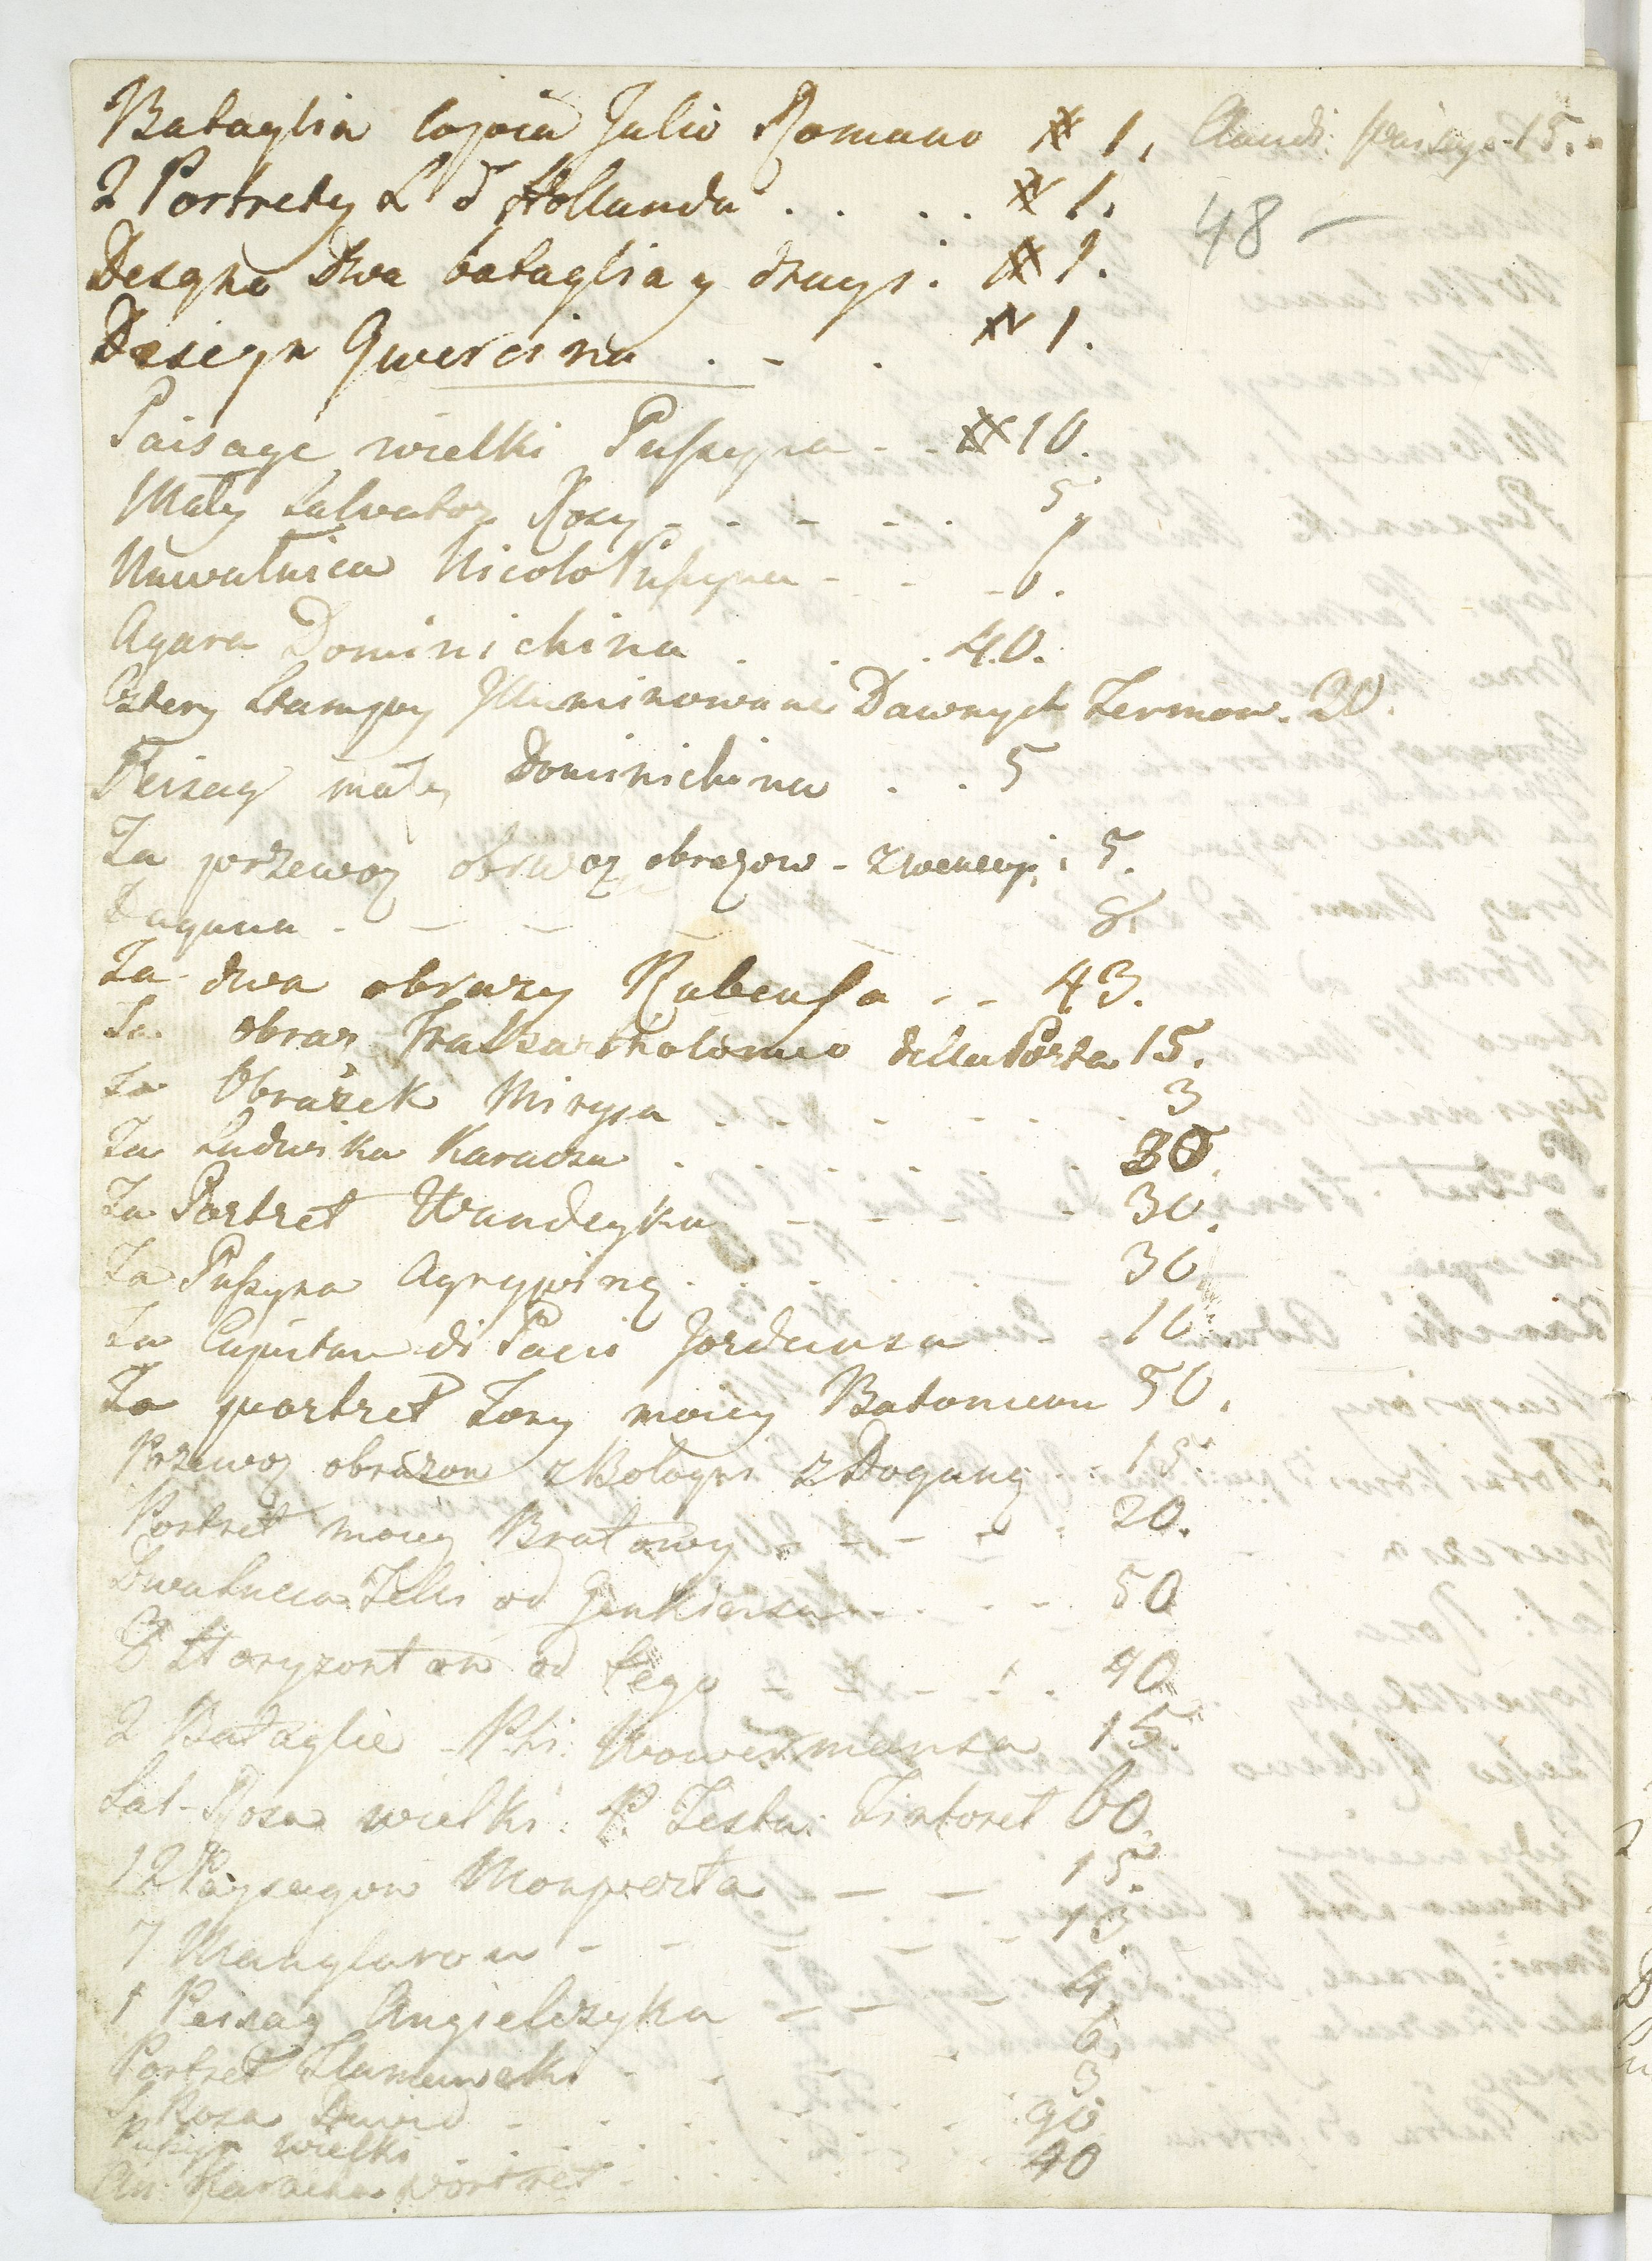 Bataglia copia Julio Romano # 1. Claudi: paisage 15.
2 Portrety L d'Hollanda . . . . # 1. 48 –
Desgno Dwa bataglia y drugi. # 1.
Desegn Gwercina . - . # 1.
Paisage wielki Pussyna - - # 10.
Mały Salvator Rosy - - - - . 5
Nawalnica Nicolo Pussyna - - - 6.
Agara Dominichina . . . 40.
Cztery Stampy Illuminowane Dawnych Termow. 20.
Peizag mały Dominichina . . 5
Za przewoz obrazow - z wenecyi. 5.
Dugana . - - 8
Za dwa obrazy Rubensa - - 43.
Za obraz Fra Bartholomeo della Porta 15.
Za Obrazek Mirysa . . - . . . 3
Za Ludwika Karacza . . . . . . . 30.
Za Portret Wandeyka - - - - 30.
Za Pussyna Agryping . . . . . 30
Za Capitan di Paesi Jordansa - 10.
Za portret Zony moiey Batoniem 50.
Przewoz obrazow z Bologni z Doganą . . 15.
Portret moiey Bratowy - - - . 20.
od Jenkinsa . . . . . 50
Horyzontow od tego - - - . . 40
2 Bataglie Phi: Wowermansa 15.
Sal-Rosa wielki. P. Testa: Tintoret 60.
12 Paysagow Monperta - - 15.
7 Manglarow - - - - - 15.
1 Peisag Angielczyka - - - 4.
Portret - . - . 6.
S. Rosa Dawid - . . . . . 3.
Pussyn wielki . . . . . 90
An: Karacha portret . . . . . 40